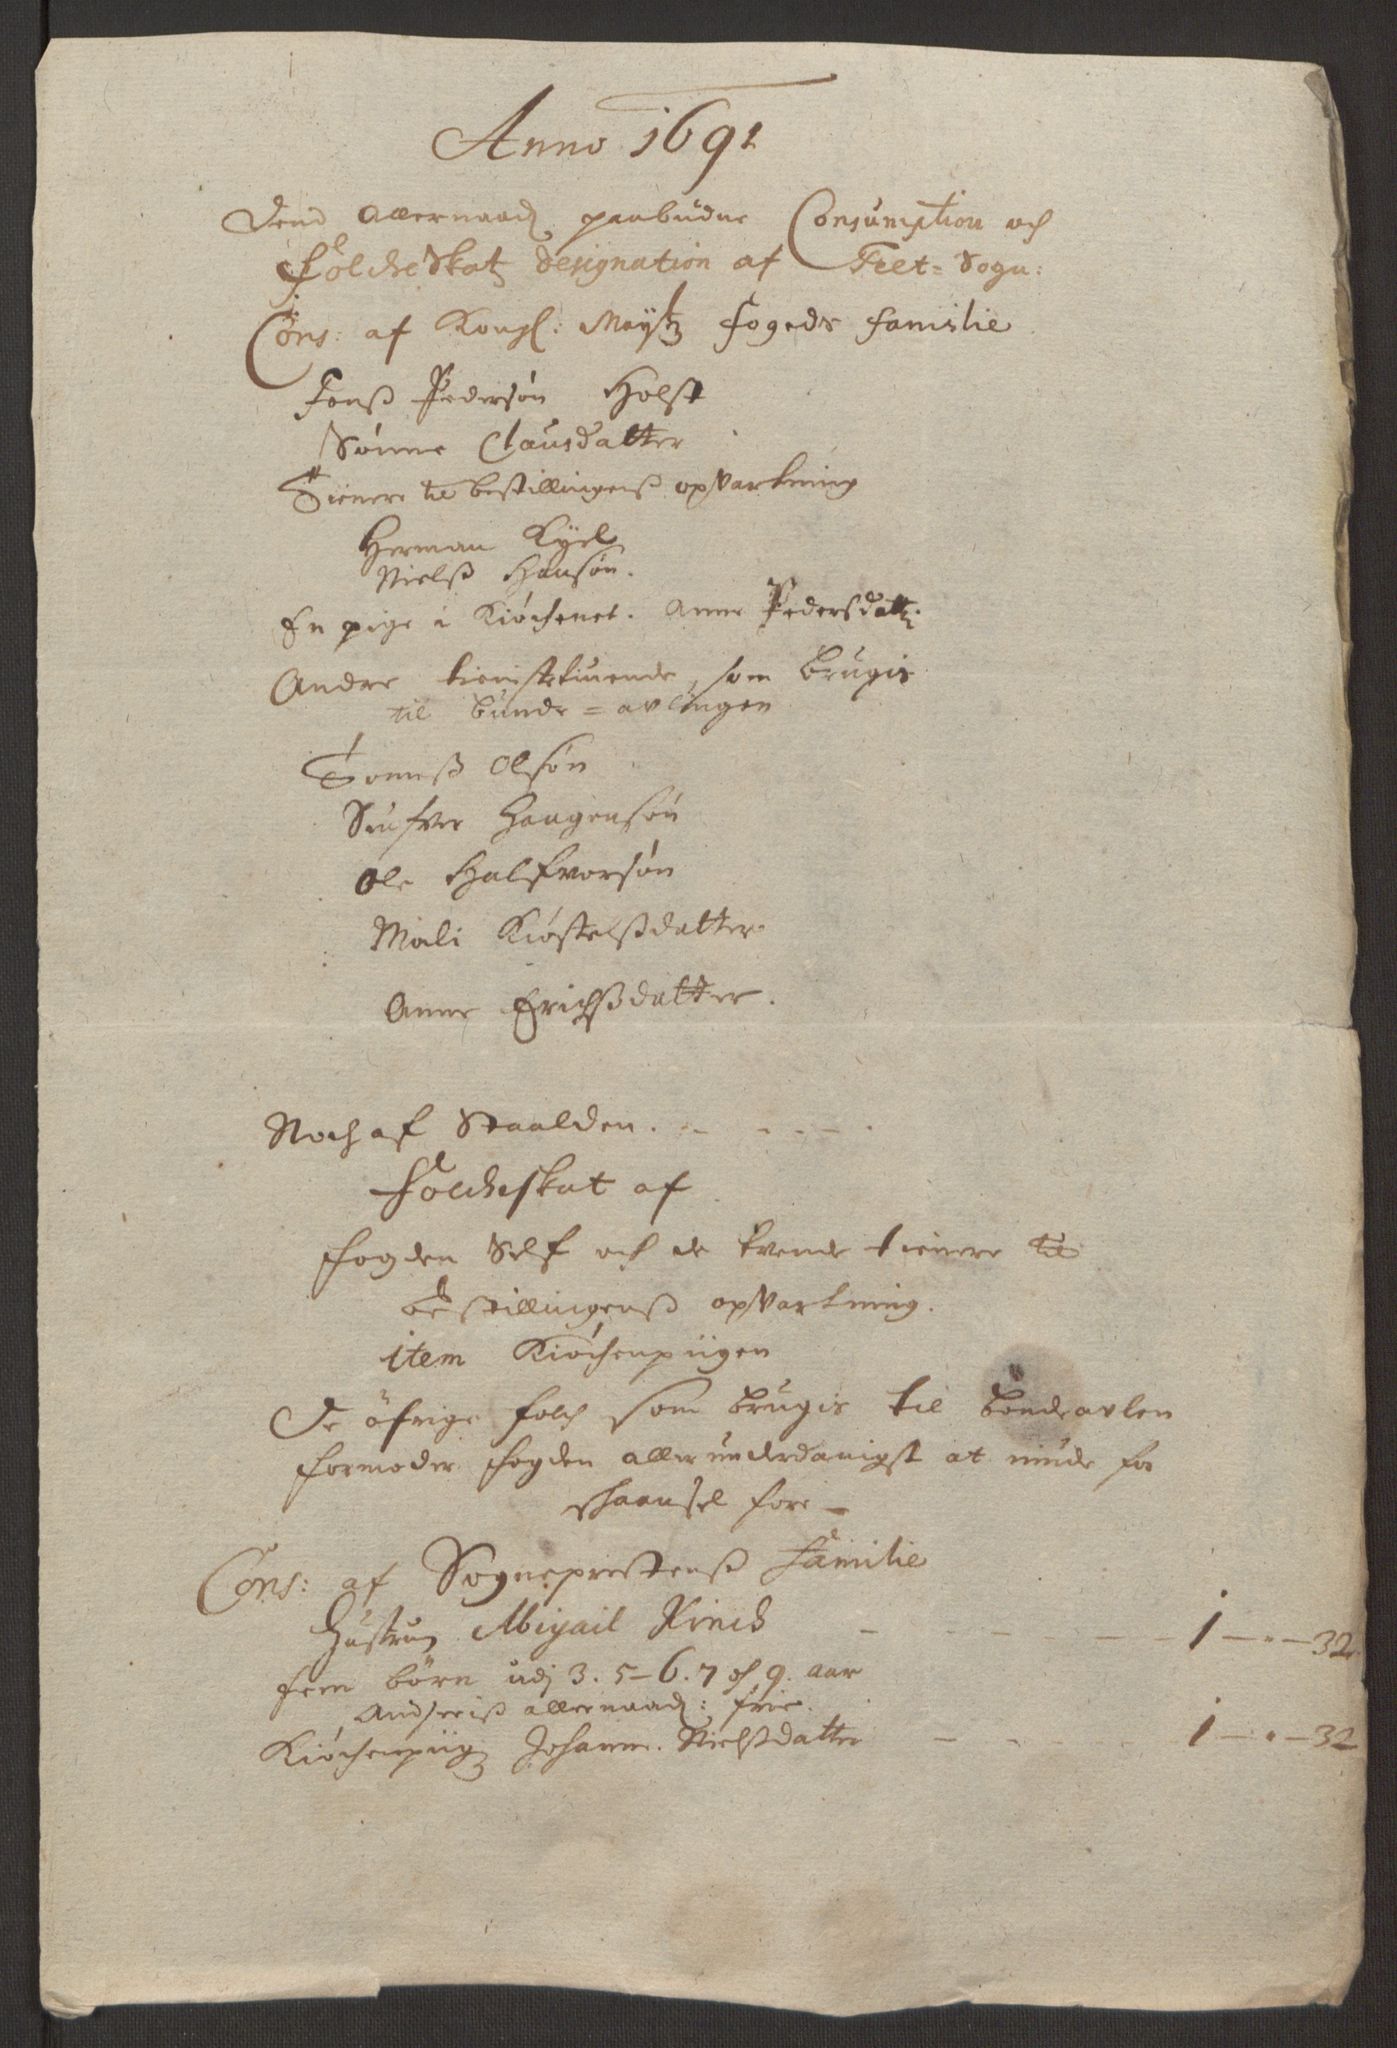 Anno 1691
Dend Allernaad paabudne Consumption och
Folcke Skatz designation af Feet= Sogn:
Cons: af Kongl: Maÿtz fogeds familie
Jenß Pedersøn Holst
Sønne Clausdatter
Tienere til bestillingenß opvartning
Herman Kÿel
Nielß Hansøn.
En pige i Kiøchenet. Anne Pedersdatt:
Andre tienistetiuende, som brugis
til bunde=avlingen
Tomeß Olsøn
Siufver Haagensøn
Ole Halfvorsøn
Mali Kiøstelßdatter
Anne Erichßdatter.
Noch af Staalden.
Folcheskat af
fogden Self och de tvende tienere til
bestillingenß opvartning.
item Kiøchenpiigen
De öfrige folch som brugis til bondeavlen
formoder fogden allerunderdanigst at niude for
skaansel fore
Cons: af Sogneprestenß Familie
Hustrue Abigail Kinck - - - 1 - " - 32
fem børn udj 3. 5 - 6. 7 og 9. aar
Allernaad: frie.
Kiøchenpiig Johanne Nielsdatter - - - 1 - " - 32